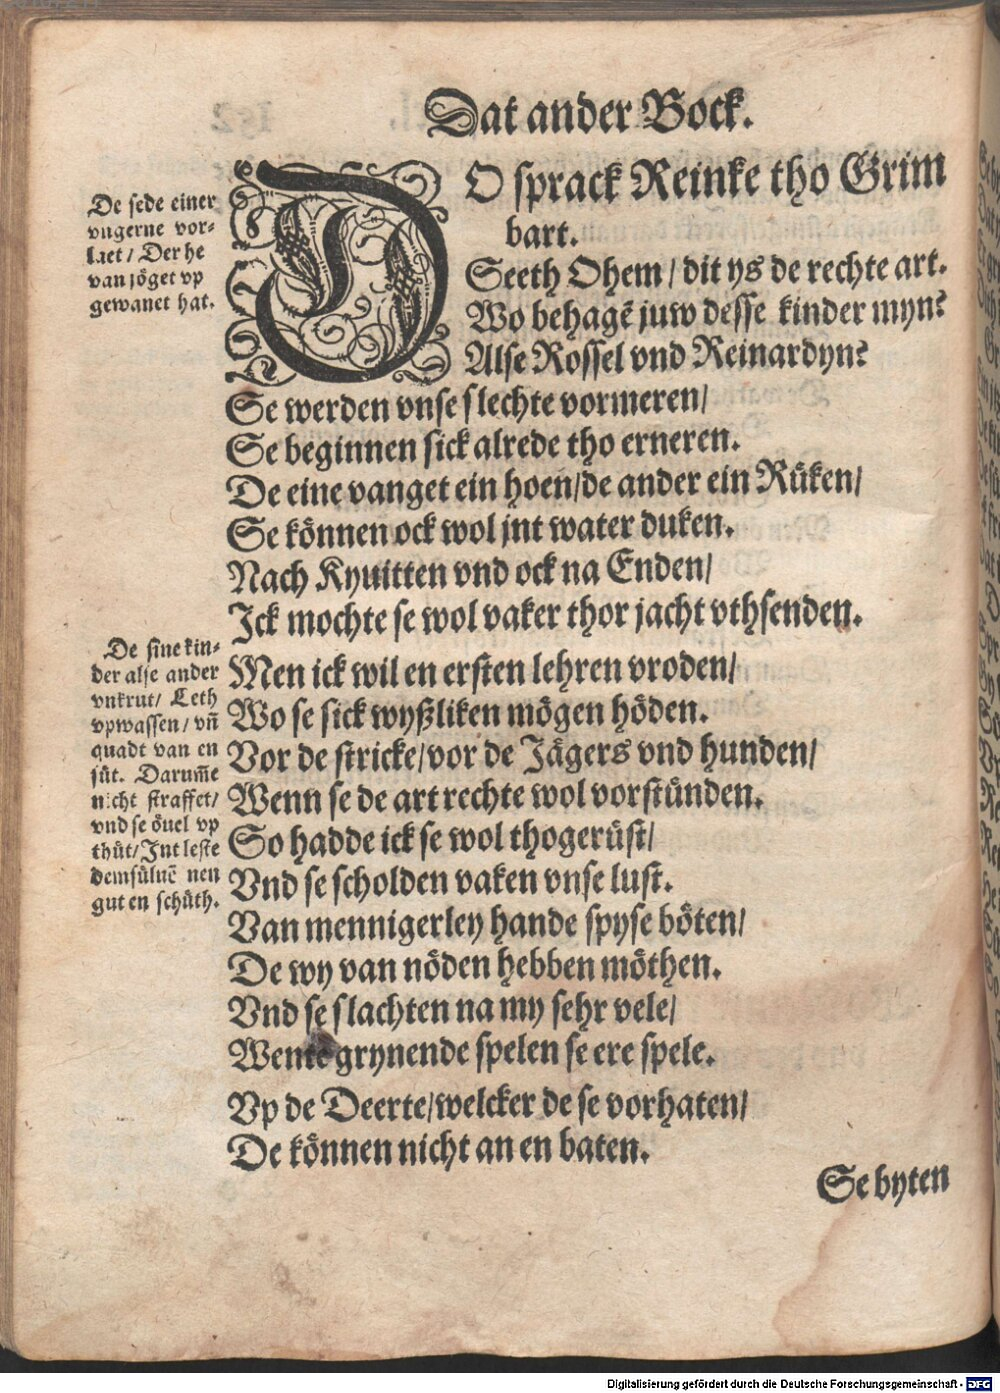 Dat ander Bock.
De sede einer
vngerne vor-
læt / Der he
van jöget vp
gewanet hat.
DO sprack Reinke tho Grim
bart.
Seeth Ohem / dit ys de rechte art.
Wo behagē juw desse kinder myn?
Alse Rossel vnd Reinardyn?
Se werden vnse slechte vormeren/
Se beginnen sick alrede tho erneren.
De eine vanget ein hoen/de ander ein Rüken/
Se können ock wol jnt water duken.
Nach Kyuitten vnd ock na Enden/
Ick mochte se wol vaker thor jacht vthsenden.
De sine kin-
der alse ander
vnkrut/ Leth
vpwassen/ vñ
quadt van en
süt. Darum̄e
nicht straffet/
vnd se öuel vp
thüt/Int leste
demsüluē nen
gut en schüth.
Men ick wil en ersten lehren vroden/
Wo se sick wyßliken mögen höden.
Vor de stricke/vor de Jägers vnd hunden/
Wenn se de art rechte wol vorstünden.
So hadde ick se wol thogerüst/
Vnd se scholden vaken vnse lust.
Van mennigerley hande spyse böten/
De wy van nöden hebben möthen.
Vnd se slachten na my sehr vele/
Wente grynende spelen se ere spele.
Vp de Deerte/welcker de se vorhaten/
De können nicht an en baten.
Se byten
Digitalisierung gefördert durch die Deutsche Forschungsgemeinschaft - DFG